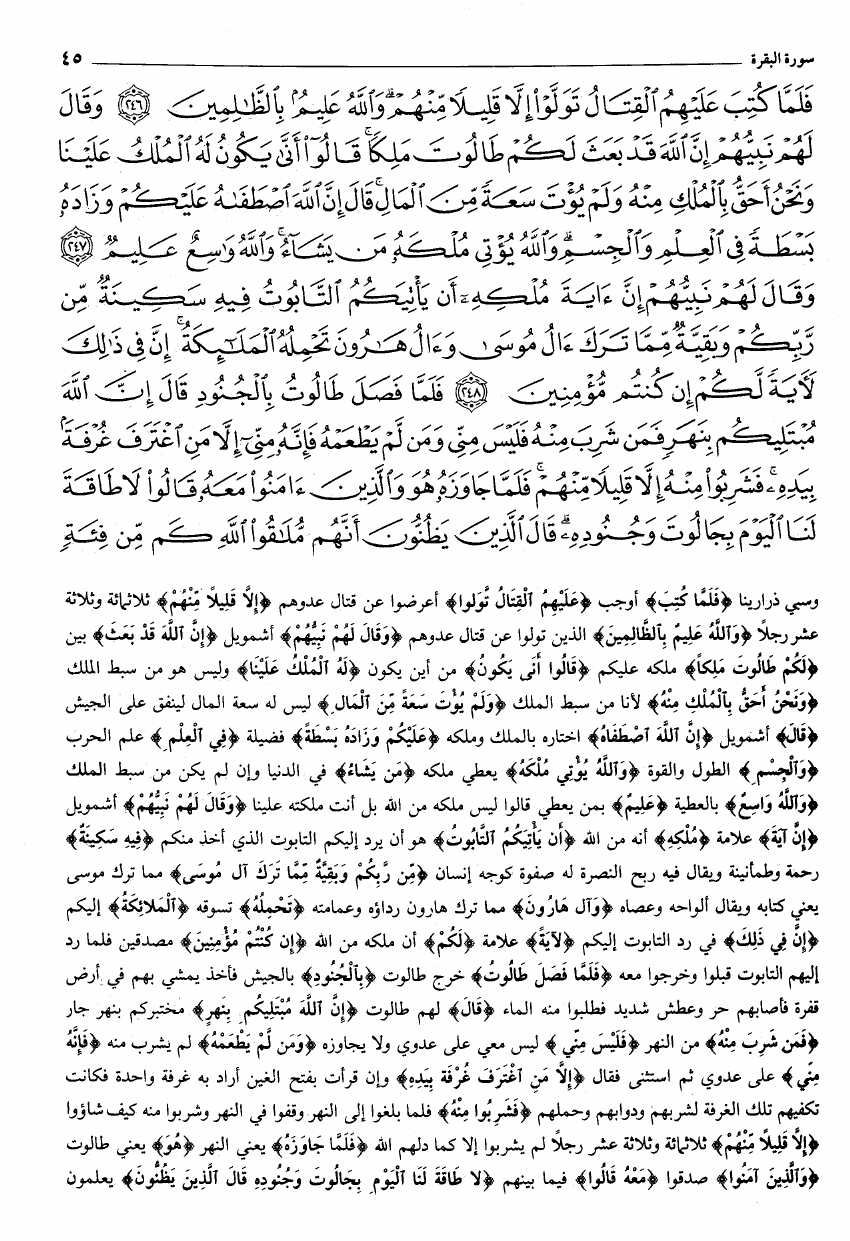 سورة البقرة ٤٥
فَلَمَّا كُتِبَ عَلَيْهِمُ ٱلْقِتَالُ تَوَلَّوْا۟ إِلَّا قَلِيلًا مِّنْهُمْ ۗ وَٱللَّهُ عَلِيمٌۢ بِٱلظَّٰلِمِينَ ﴿٢٤٦﴾ وَقَالَ
لَهُمْ نَبِيُّهُمْ إِنَّ ٱللَّهَ قَدْ بَعَثَ لَكُمْ طَالُوتَ مَلِكًا ۚ قَالُوٓا۟ أَنَّىٰ يَكُونُ لَهُ ٱلْمُلْكُ عَلَيْنَا
وَنَحْنُ أَحَقُّ بِٱلْمُلْكِ مِنْهُ وَلَمْ يُؤْتَ سَعَةً مِّنَ ٱلْمَالِ ۚ قَالَ إِنَّ ٱللَّهَ ٱصْطَفَىٰهُ عَلَيْكُمْ وَزَادَهُۥ
بَسْطَةً فِى ٱلْعِلْمِ وَٱلْجِسْمِ ۖ وَٱللَّهُ يُؤْتِى مُلْكَهُۥ مَن يَشَآءُ ۚ وَٱللَّهُ وَٰسِعٌ عَلِيمٌ ﴿٢٤٧﴾
وَقَالَ لَهُمْ نَبِيُّهُمْ إِنَّ ءَايَةَ مُلْكِهِۦٓ أَن يَأْتِيَكُمُ ٱلتَّابُوتُ فِيهِ سَكِينَةٌ مِّن
رَّبِّكُمْ وَبَقِيَّةٌ مِّمَّا تَرَكَ ءَالُ مُوسَىٰ وَءَالُ هَٰرُونَ تَحْمِلُهُ ٱلْمَلَٰٓئِكَةُ ۚ إِنَّ فِى ذَٰلِكَ
لَءَايَةً لَّكُمْ إِن كُنتُم مُّؤْمِنِينَ ﴿٢٤٨﴾ فَلَمَّا فَصَلَ طَالُوتُ بِٱلْجُنُودِ قَالَ إِنَّ ٱللَّهَ
مُبْتَلِيكُم بِنَهَرٍ فَمَن شَرِبَ مِنْهُ فَلَيْسَ مِنِّى وَمَن لَّمْ يَطْعَمْهُ فَإِنَّهُۥ مِنِّىٓ إِلَّا مَنِ ٱغْتَرَفَ غُرْفَةًۢ
بِيَدِهِۦ ۚ فَشَرِبُوا۟ مِنْهُ إِلَّا قَلِيلًا مِّنْهُمْ ۚ فَلَمَّا جَاوَزَهُۥ هُوَ وَٱلَّذِينَ ءَامَنُوا۟ مَعَهُۥ قَالُوا۟ لَا طَاقَةَ
لَنَا ٱلْيَوْمَ بِجَالُوتَ وَجُنُودِهِۦ ۚ قَالَ ٱلَّذِينَ يَظُنُّونَ أَنَّهُم مُّلَٰقُوا۟ ٱللَّهِ كَم مِّن فِئَةٍ
وسبي ذرارينا ﴿فَلَمَّا كُتِبَ﴾ أوجب ﴿عَلَيْهِمُ ٱلْقِتَالُ تَوَلوا﴾ أعرضوا عن قتال عدوهم ﴿إِلَّا قَلِيلًا مِّنْهُمْ﴾ ثلاثمائة وثلاثة
عشر رجلاً ﴿وَٱللَّهُ عَلِيمٌ بِٱلظَّالِمِينَ﴾ الذين تولوا عن قتال عدوهم ﴿وَقَالَ لَهُمْ نَبِيُّهُمْ﴾ أشمويل ﴿إِنَّ ٱللَّهَ قَدْ بَعَثَ﴾ بين
﴿لَكُمْ طَالُوتَ مَلِكاً﴾ ملكه عليكم ﴿قَالُوا أَنَّى يَكُونُ﴾ من أين يكون ﴿لَهُ ٱلْمُلْكُ عَلَيْنَا﴾ وليس هو من سبط الملك
﴿وَنَحْنُ أَحَقُّ بِٱلْمُلْكِ مِنْهُ﴾ لأنا من سبط الملك ﴿وَلَمْ يُؤْتَ سَعَةً مِّنَ ٱلْمَالِ﴾ ليس له سعة المال لينفق على الجيش
﴿قَالَ﴾ أشمويل ﴿إِنَّ ٱللَّهَ ٱصْطَفَاهُ﴾ اختاره بالملك وملكه ﴿عَلَيْكُمْ وَزَادَهُ بَسْطَةً﴾ فضيلة ﴿فِي ٱلْعِلْمِ﴾ علم الحرب
﴿وَٱلْجِسْمِ﴾ الطول والقوة ﴿وَٱللَّهُ يُؤْتِي مُلْكَهُ﴾ يعطي ملكه ﴿مَن يَشَاءُ﴾ في الدنيا وإن لم يكن من سبط الملك
﴿وَٱللَّهُ وَاسِعٌ﴾ بالعطية ﴿عَلِيمٌ﴾ بمن يعطي قالوا ليس ملكه من الله بل أنت ملكته علينا ﴿وَقَالَ لَهُمْ نَبِيُّهُمْ﴾ أشمويل
﴿إِنَّ آيَةَ﴾ علامة ﴿مُلْكِهِ﴾ أنه من الله ﴿أَن يَأْتِيَكُمُ ٱلتَّابُوتُ﴾ هو أن يرد إليكم التابوت الذي أخذ منكم ﴿فِيهِ سَكِينَةٌ﴾
رحمة وطمأنينة ويقال فيه ريح النصرة له صفوة كوجه إنسان ﴿مِّن رَّبِكُمْ وَبَقِيَّةٌ مِّمَّا تَرَكَ آل مُوسَى﴾ مما ترك موسى
يعني كتابه ويقال ألواحه وعصاه ﴿وَآل هَارُونَ﴾ مما ترك هارون رداؤه وعمامته ﴿تَحْمِلُهُ﴾ تسوقه ﴿ٱلْمَلائِكَةُ﴾ إليكم
﴿إِنَّ فِي ذَلِكَ﴾ في رد التابوت إليكم ﴿لآيَةً﴾ علامة ﴿لَكُمْ﴾ أن ملكه من الله ﴿إِن كُنْتُم مُؤْمِنِينَ﴾ مصدقين فلما رد
إليهم التابوت قبلوا وخرجوا معه ﴿فَلَمَّا فَصَلَ طَالُوتُ﴾ خرج طالوت ﴿بِٱلْجُنُودِ﴾ بالجيش فأخذ يمشي بهم في أرض
قفرة فأصابهم حر وعطش شديد فطلبوا منه الماء ﴿قَالَ﴾ لهم طالوت ﴿إِنَّ ٱللَّهَ مُبْتَلِيكُم بِنَهَرٍ﴾ مختبركم بنهر جار
﴿فَمَن شَرِبَ مِنْهُ﴾ من النهر ﴿فَلَيْسَ مِنِّي﴾ ليس معي على عدوي ولا يجاوزه ﴿وَمَن لَّمْ يَطْعَمْهُ﴾ لم يشرب منه ﴿فَإِنَّهُ
مِنِّي﴾ على عدوي ثم استثنى فقال ﴿إِلَّا مَنِ ٱغْتَرَفَ غُرْفَة بِيَدِهِ﴾ وإن قرأت بفتح الغين أراد به غرفة واحدة فكانت
تكفيهم تلك الغرفة لشربهم ودوابهم وحملهم ﴿فَشَرِبُوا مِنْهُ﴾ فلما بلغوا إلى النهر وقفوا في النهر وشربوا منه كيف شاؤوا
﴿إِلَّا قَلِيلًا مِّنْهُمْ﴾ ثلاثمائة وثلاثة عشر رجلاً لم يشربوا إلا كما دلهم الله ﴿فَلَمَّا جَاوَزَهُ﴾ يعني النهر ﴿هُوَ﴾ يعني طالوت
﴿وَٱلَّذِينَ آمَنُوا﴾ صدقوا ﴿مَعَهُ قَالُوا﴾ فيما بينهم ﴿لا طَاقَةَ لَنَا ٱلْيَوْمَ بِجَالُوتَ وَجُنُودِهِ قَالَ ٱلَّذِينَ يَظُنُّونَ﴾ يعلمون